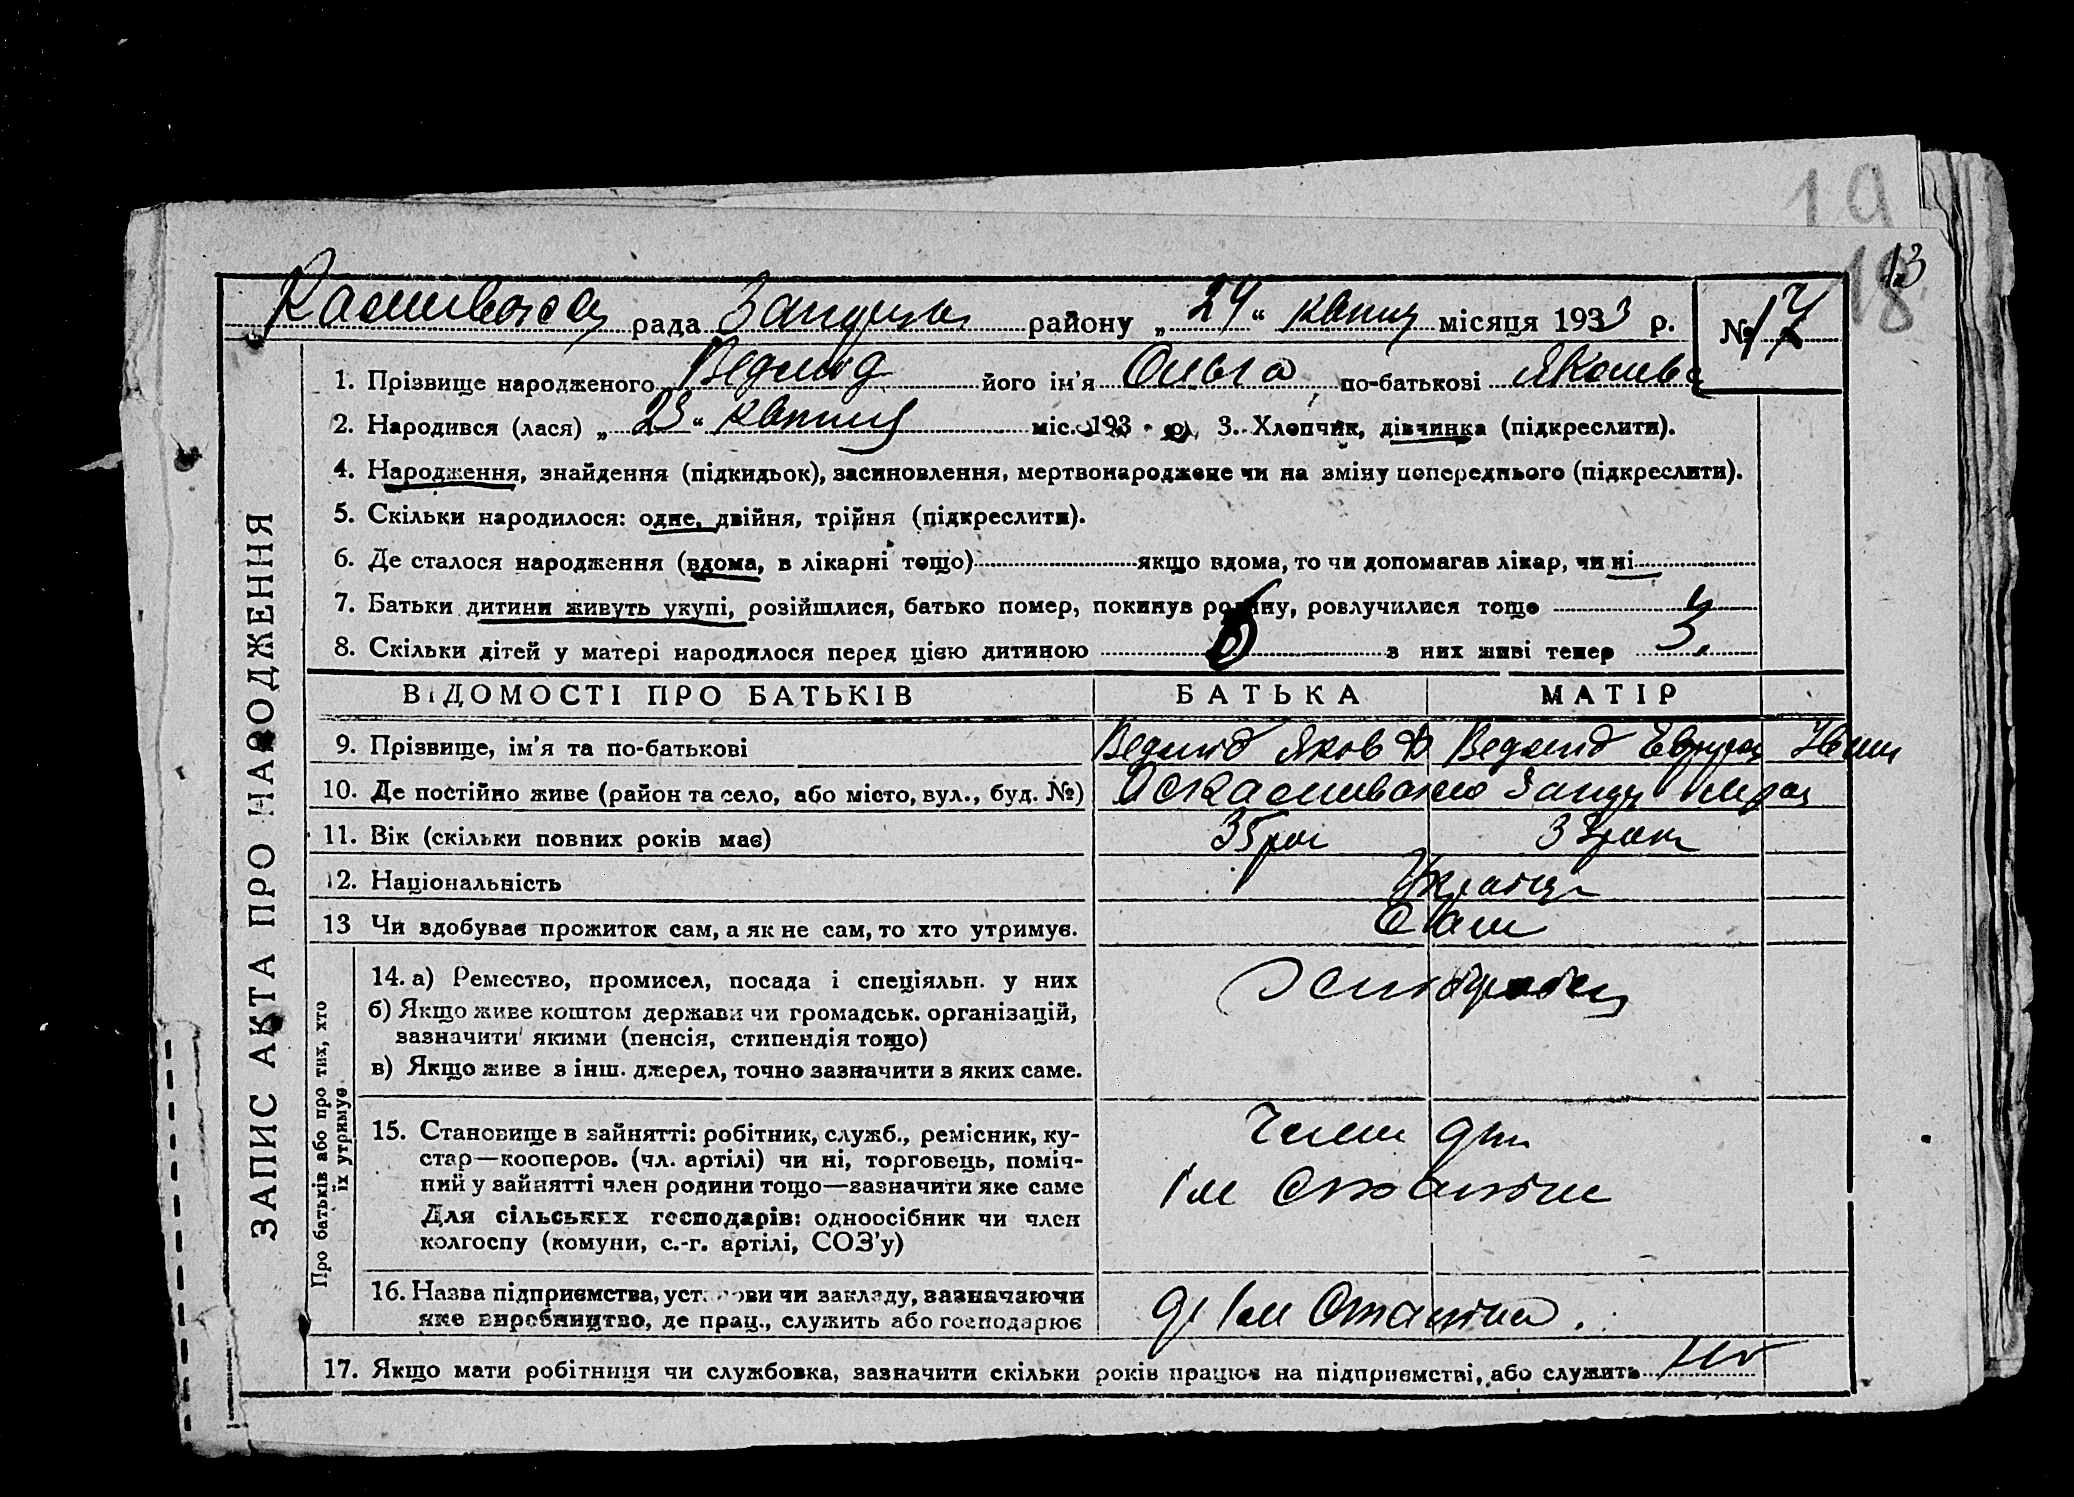 19
18
13
рада району „ 24 “ місяця 1933 р. № 17
1. Прізвище народженого Ведмід його ім'я Ольга по-батькові Якомвa
2. Народився (лася) „ 23 “ міс. 193 р. 3. Хлопчик, дівчинка (підкреслити).
4. Народження, знайдення (підкидьок), засиновлення, мертвонароджене чи на зміну попереднього (підкреслити).
5. Скільки народилося: одне, двійня, трійня (підкреслити).
6. Де сталося народження (вдома, в лікарні тощо) якщо вдома, то чи допомагав лікар, чи ні
7. Батьки дитини живуть укупі, розійшлися, батько помер, покинув родину, розлучилися тощо
8. Скільки дітей у матері народилося перед цією дитиною 6 з них живі тепер 3
ЗАПИС АКТА ПРО НАРОДЖЕННЯ
ВІДОМОСТІ ПРО БАТЬКІВ БАТЬКА МАТІР
9. Прізвище, ім'я та по-батькові Ведмід Яков Ведмід
10. Де постійно живе (район та село, або місто, вул., буд. №)
11. Вік (скільки повних років має) 35 рок 33 рок
12. Національність
13 Чи здобуває прожиток сам, а як не сам, то хто утримує. Сам
Про батьків або про тих, хто їх утримує
14. а) Ремество, промисел, посада і спеціяльн. у них
б) Якщо живе коштом держави чи громадськ. організацій,
зазначити якими (пенсія, стипендія тощо)
в) Якщо живе з інш. джерел, точно зазначити з яких саме.
15. Становище в зайнятті: робітник, служб., ремісник, ку-
стар—кооперов. (чл. артілі) чи ні, торговець, поміч-
ний у зайнятті член родини тощо—зазначити яке саме
Для сільських господарів: одноосібник чи член
колгоспу (комуни, с.-г. артілі, СОЗ'у)
Член
Ім Сталіна
16. Назва підприємства, установи чи закладу, зазначаючи
яке виробництво, де прац., служить або господарює
Ім Сталіна.
17. Якщо мати робітниця чи службовка, зазначити скільки років працює на підприємстві, або служить